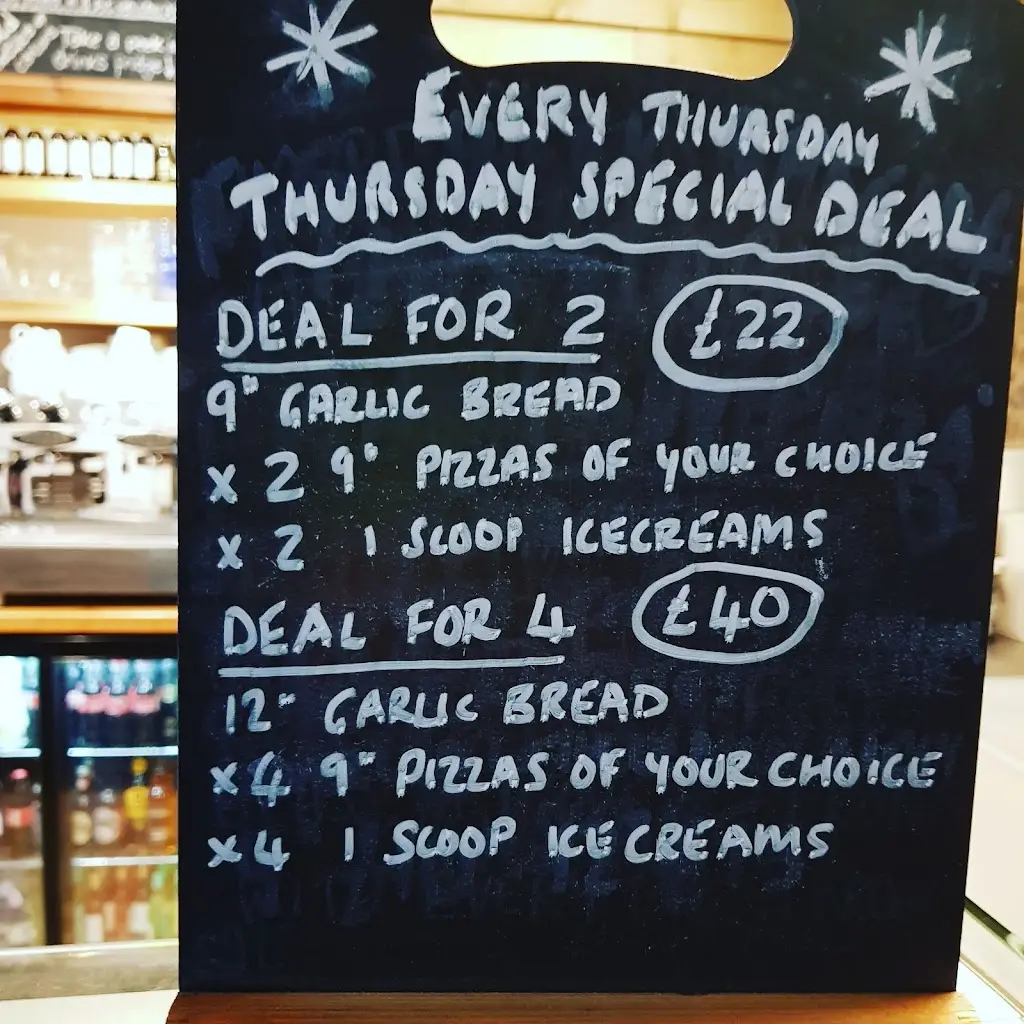 Take a
drinks
EVERY THURSDAY
THURSDAY SPECIAL DEAL
DEAL FOR 2 £22
9" GARLIC BREAD
x 2 9" PIZZAS OF YOUR CHOICE
x 2 1 SCOOP ICECREAMS
DEAL FOR 4 £40
12" GARLIC BREAD
x4 9" PIZZAS OF YOUR CHOICE
x4 1 SCOOP ICE CREAMS